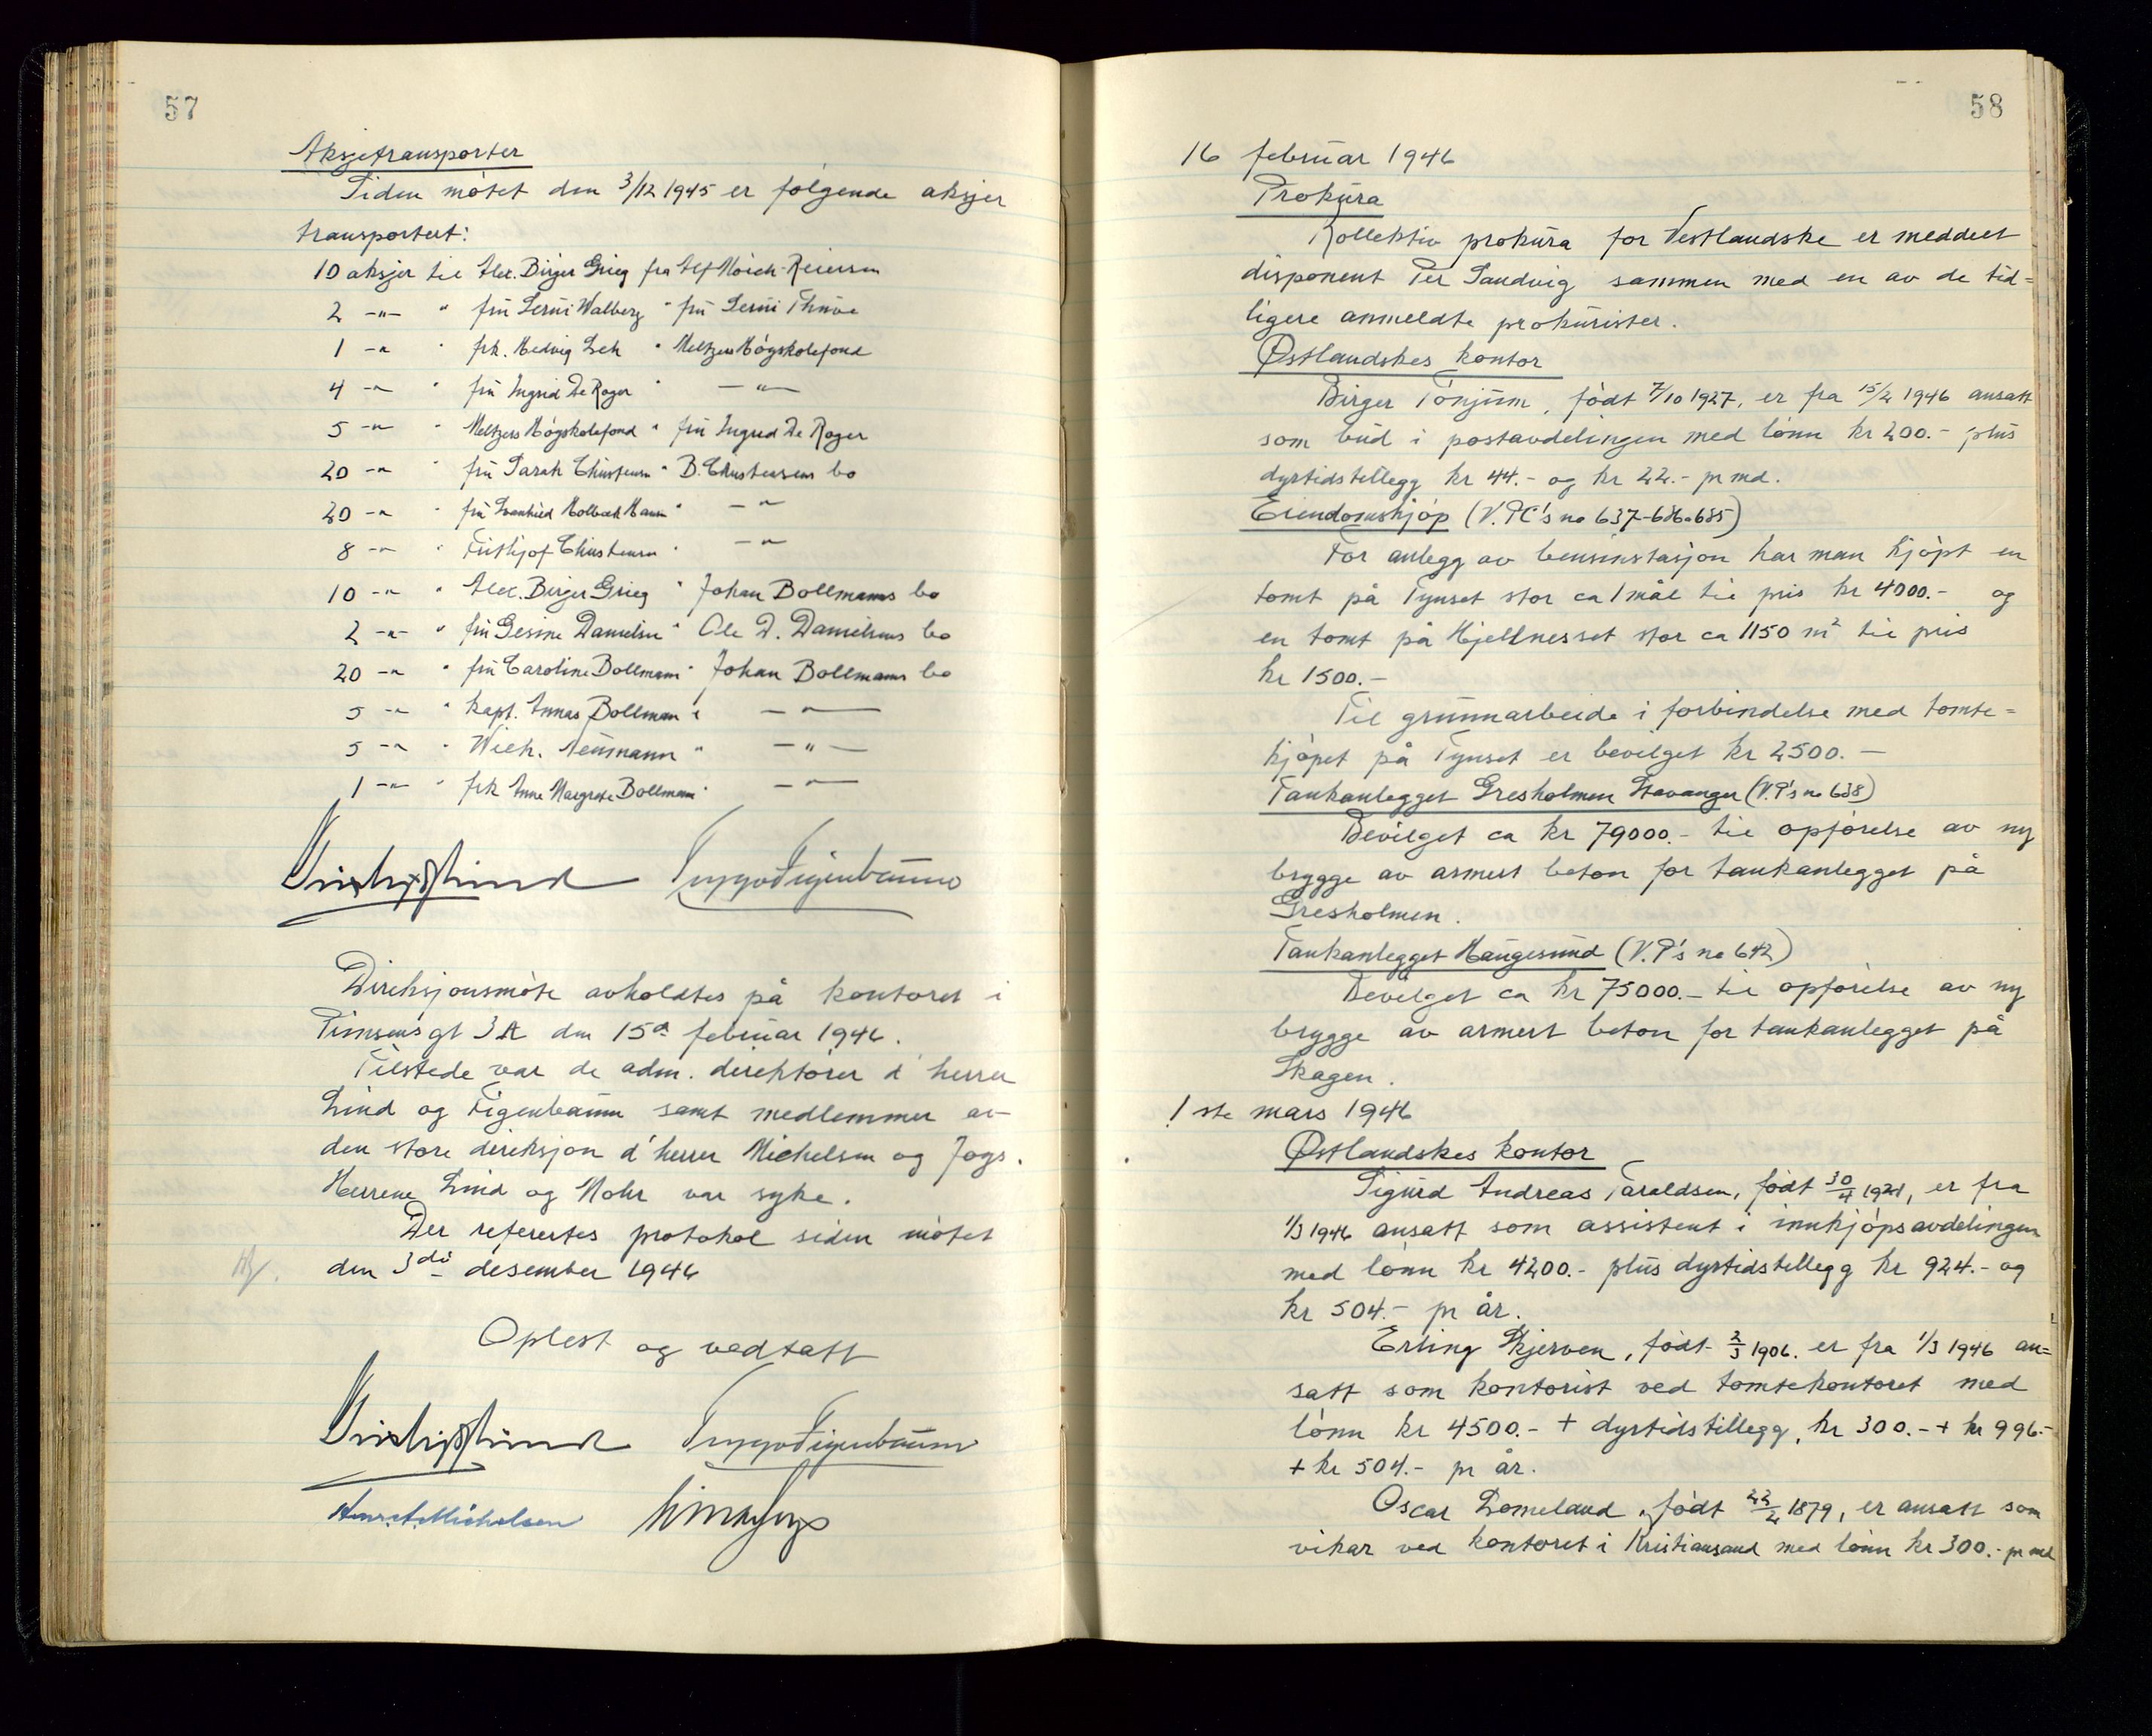 57
Aksjetransporter
Siden møtet den 3/12 1945 er følgende aksjer
transportert:
10 aksjer til Alex. Birger Grieg fra Alf Mörch-Reiersen
2 -"- " frü Lerni Walberg " frü Lerni
1 -"- " frk. Hedvig Leh " Meltzers Høgskolefond
4 -"- " frü Ingrid De Roger " -"-
5 -"- " Meltzers Høgskolefond " frü Ingrid De Roger
20 -"- " frü Sarah Christensen " B. Christensens bo
20 -"- " frü " -"-
8 -"- " Frithjof Christensen " -"-
10 -"- " Alex. Birger Grieg " Johan Bollmanns bo
2 -"- " frü Gesine Danielsen " Ole D. Danielsens bo
20 -"- " frü Caroline Bollmann " Johan Bollmanns bo
5 -"- " Kapt. Annas Bollmann " -"-
5 -"- " Wilh. Neümann " -"-
1 -"- " frk Anne Margrete Bollmann " -"-
Direksjonsmøte avholdtes på kontoret i
gt 3A den 15de februar 1946.
Tilstede var de adm. direktører d'herrer
Lind og Figenbaum samt medlemmer av
den store direksjon d'herrer Michelsen og Jøgs.
Herrene Lind og Mohr var syke.
Der refertes protokol siden møtet
den 3die desember 1946
Oplest og vedtatt
58
16 februar 1946
Prokura
Kollektiv prokura for Vestlandske er meddelt
disponent Per Sandvig sammen med en av de tid=
ligere anmeldte prokurister.
Østlandskes kontor
Birger Tönjum, født 7/10 1927, er fra 15/2 1946 ansatt
som bud i postavdelingen med lønn kr 200.- plus
dyrtidstillegg kr 44.- og kr 22.- pr md.
Eiendomskjøp (V.PC's no 637-686 685)
For anlegg av bensinstasjon har man kjøpt en
tomt på Tynset stor ca 1 mål til pris kr 4000.- og
en tomt på Kjellnesset stor ca 1150 m² til pris
kr 1500.-
Til grunnarbeide i forbindelse med tomte=
kjøpet på Tynset er bevilget kr 2500.-
Tankanlegget Gresholmen Stavanger (V.P's no 638)
Bevilget ca kr 79000.- til opførelse av ny
brygge av armert beton for tankanlegget på
Gresholmen.
Tankanlegget Haugesund (V.P's no 642)
Bevilget ca kr 75000.- til opførelse av ny
brygge av armert beton for tankanlegget på
Skagen.
1ste mars 1946
Østlandskes kontor
Sigurd Andreas Taraldsen, født 30/4 1921, er fra
1/3 1946 ansatt som assistent i innkjøpsavdelingen
med lønn kr 4200.- plus dyrtidstillegg kr 924.- og
kr 504.- pr år.
Erling Skjerven, født 2/3 1906. er fra 1/3 1946 an=
satt som kontorist ved tomtekontoret med
lønn kr 4500.- + dyrtidstillegg, kr 300.- + kr 996.-
+ kr 504.- pr år.
Oscar Lomeland, født 22/2 1879, er ansatt som
vikar ved kontoret i Kristiansand med lønn kr 300.- pr md